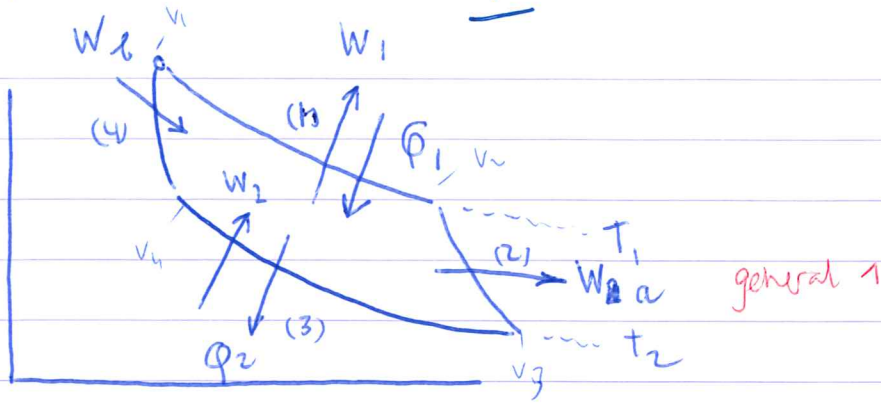 V1
Wb W1
(4) (1) Q1 V2
W2 T1
V4 (2) Wa
general 1
Q2 (3) t2
V3